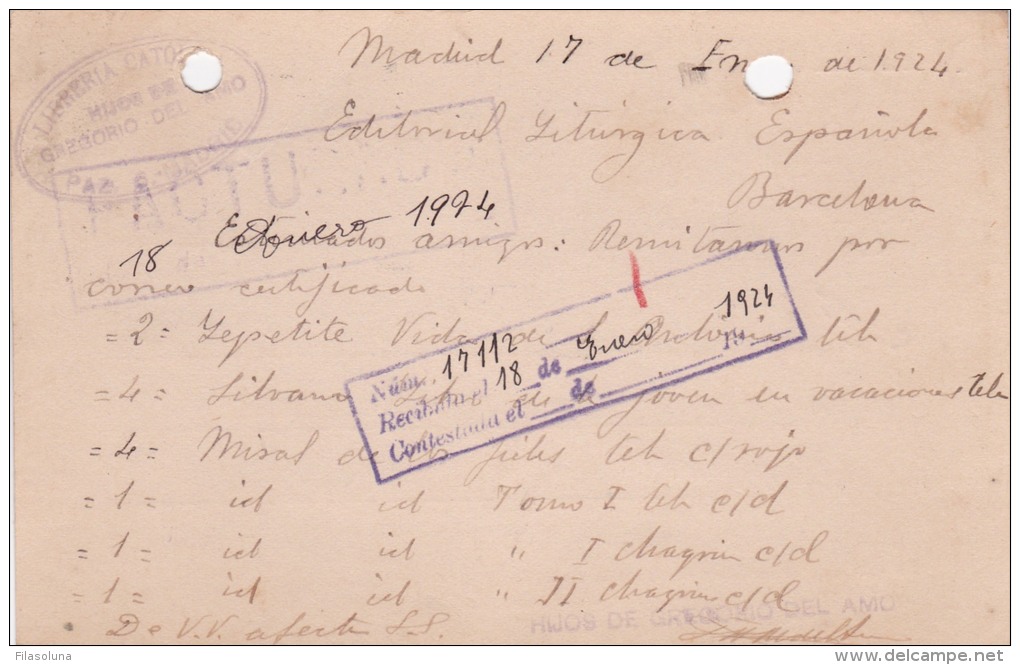 Madrid 17 de En de 1924
LIBRERÍA CATÓ
HIJOS DE
GREGORIO DEL AMO
PAZ 6 MADRID
Editorial Litúrgica Española
Barcelona
18 Enero 1924
Estimados amigos: Remítannos por
correo certificado
=2= Lepetite Vida de tela
=4= Silvano de joven en vacaciones tela
=4= Misal de los fieles tela c/rojo
=1= id id Tomo I tela c/d
=1= id id " I chagrin c/d
=1= id id " II chagrin c/d
Núm. 17112
Recibida el 18 de Enero 1924 19
Contestada el de
De V.V. afects S.S.
HIJOS DE GREGORIO DEL AMO
Filasoluna
http://www.delcampe.net